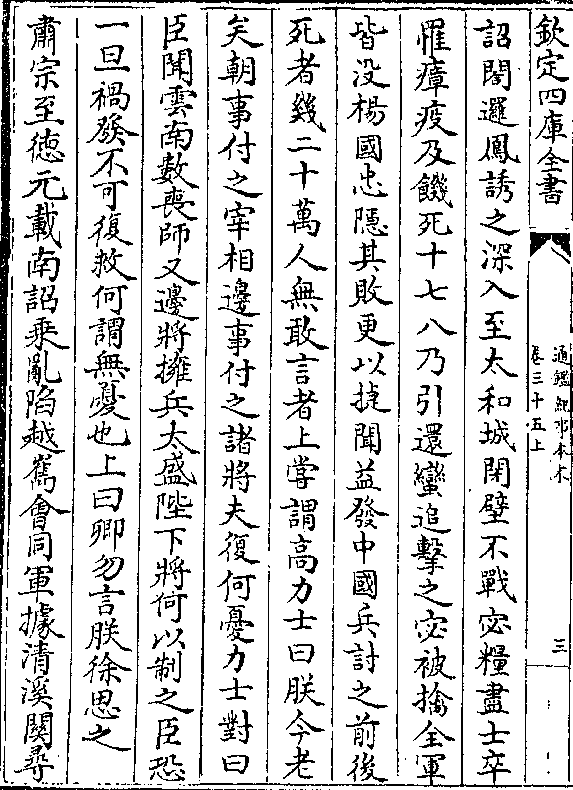 欽定四庫全書
通鑑紀事本末
卷三十五上
三
詔閤邏鳳誘之深入至太和城閉壁不戰宓糧盡士卒
罹瘴疫及饑死十七八乃引還蠻追擊之宓被擒全軍
皆没楊國忠隱其敗更以捷聞益發中國兵討之前後
死者幾二十萬人無敢言者上嘗謂高力士曰朕今老
矣朝事付之宰相邊事付之諸將夫復何憂力士對曰
臣聞雲南數喪師又邊將擁兵太盛陛下將何以制之臣恐
一旦禍發不可復救何謂無憂也上曰卿勿言朕徐思之
肅宗至德元載南詔乘亂陷越嶲會同軍據清溪關尋